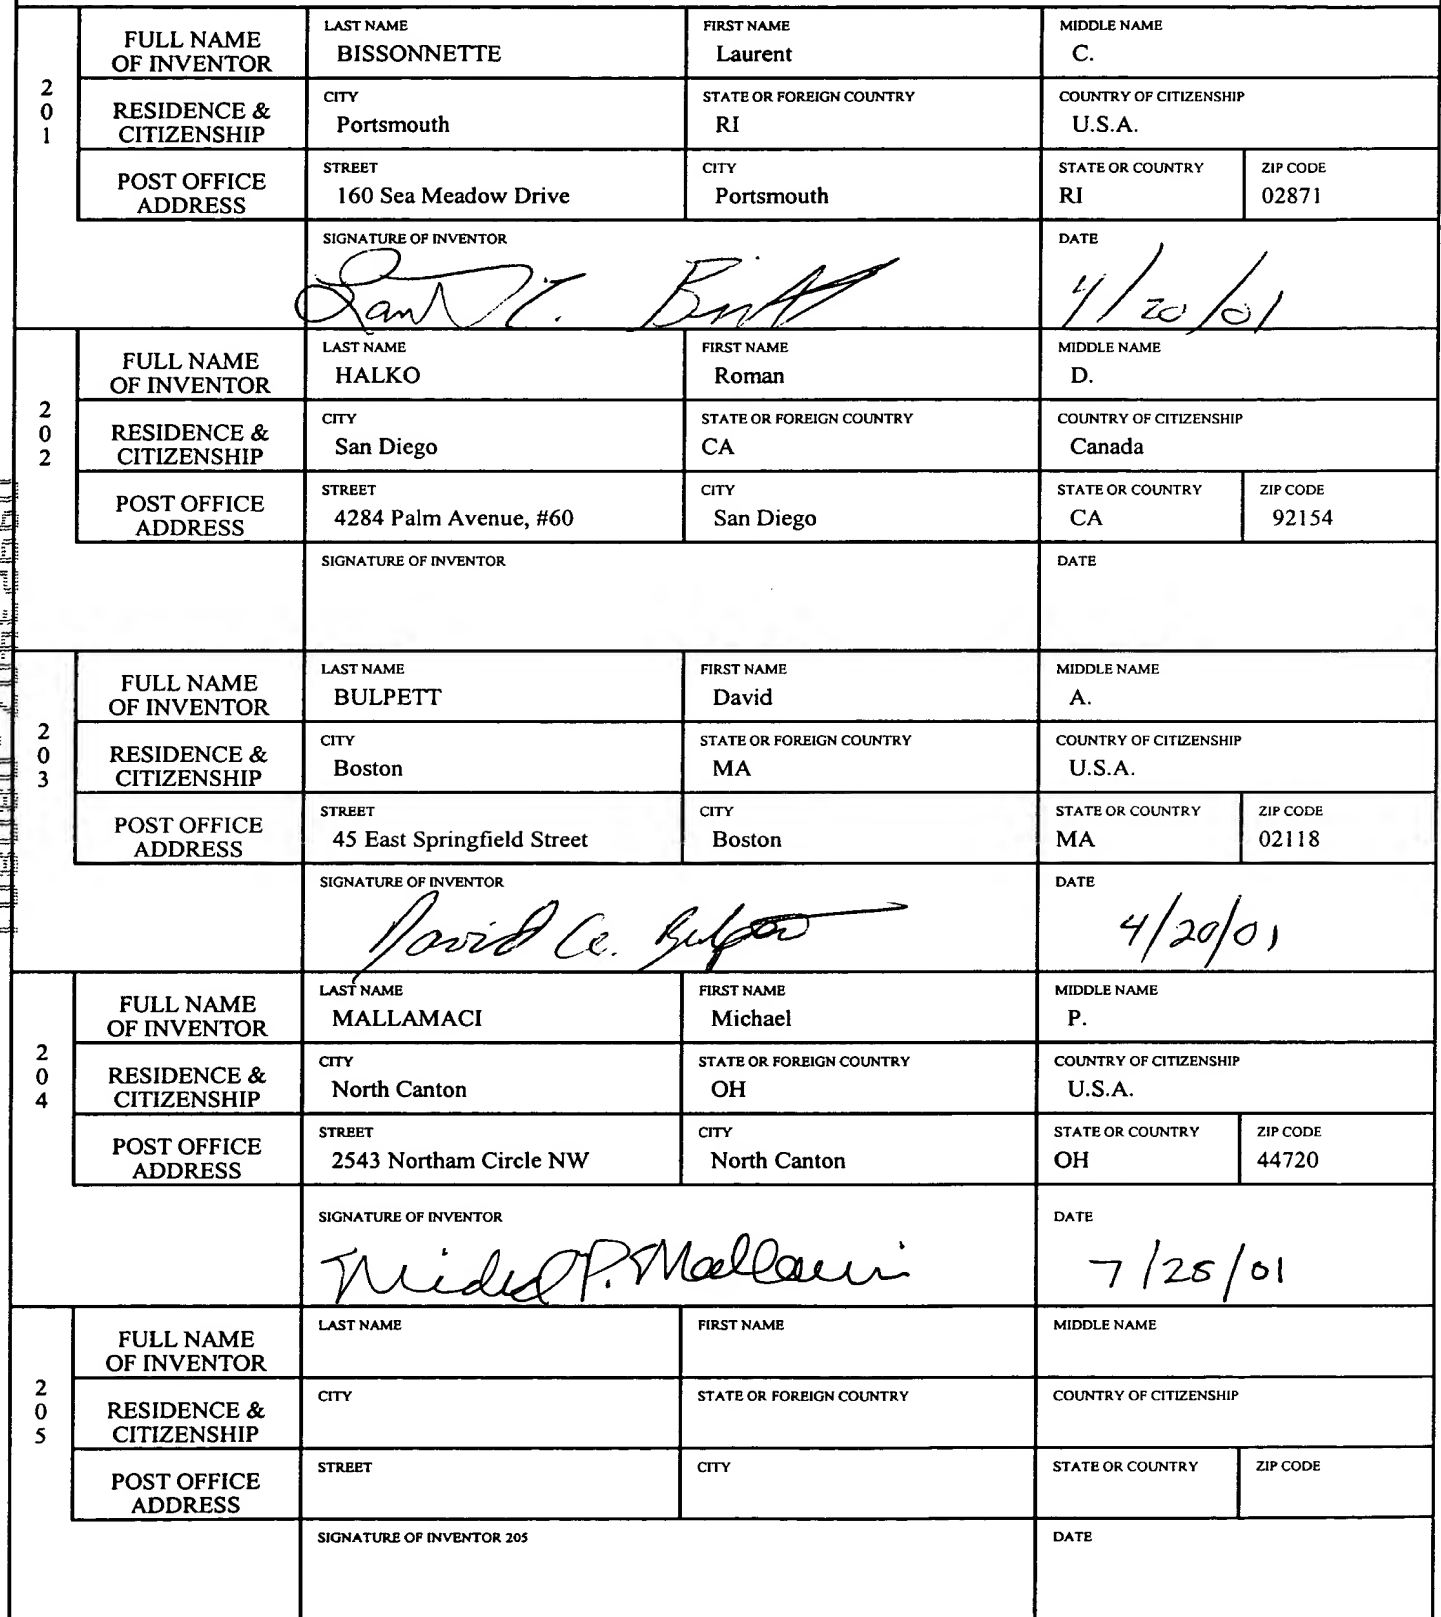 201
FULL NAME OF INVENTOR
LAST NAME BISSONNETTE
FIRST NAME Laurent
MIDDLE NAME C.
RESIDENCE & CITIZENSHIP
CITY Portsmouth
STATE OR FOREIGN COUNTRY RI
COUNTRY OF CITIZENSHIP U.S.A.
POST OFFICE ADDRESS
STREET 160 Sea Meadow Drive
CITY Portsmouth
STATE OR COUNTRY RI
ZIP CODE 02871
SIGNATURE OF INVENTOR
DATE 4/20/01
202
FULL NAME OF INVENTOR
LAST NAME HALKO
FIRST NAME Roman
MIDDLE NAME D.
RESIDENCE & CITIZENSHIP
CITY San Diego
STATE OR FOREIGN COUNTRY CA
COUNTRY OF CITIZENSHIP Canada
POST OFFICE ADDRESS
STREET 4284 Palm Avenue, #60
CITY San Diego
STATE OR COUNTRY CA
ZIP CODE 92154
SIGNATURE OF INVENTOR
DATE
203
FULL NAME OF INVENTOR
LAST NAME BULPETT
FIRST NAME David
MIDDLE NAME A.
RESIDENCE & CITIZENSHIP
CITY Boston
STATE OR FOREIGN COUNTRY MA
COUNTRY OF CITIZENSHIP U.S.A.
POST OFFICE ADDRESS
STREET 45 East Springfield Street
CITY Boston
STATE OR COUNTRY MA
ZIP CODE 02118
SIGNATURE OF INVENTOR David A.
DATE 4/20/01
204
FULL NAME OF INVENTOR
LAST NAME MALLAMACI
FIRST NAME Michael
MIDDLE NAME P.
RESIDENCE & CITIZENSHIP
CITY North Canton
STATE OR FOREIGN COUNTRY OH
COUNTRY OF CITIZENSHIP U.S.A.
POST OFFICE ADDRESS
STREET 2543 Northam Circle NW
CITY North Canton
STATE OR COUNTRY OH
ZIP CODE 44720
SIGNATURE OF INVENTOR Michael P.
DATE 7/25/01
205
FULL NAME OF INVENTOR
LAST NAME
FIRST NAME
MIDDLE NAME
RESIDENCE & CITIZENSHIP
CITY
STATE OR FOREIGN COUNTRY
COUNTRY OF CITIZENSHIP
POST OFFICE ADDRESS
STREET
CITY
STATE OR COUNTRY
ZIP CODE
SIGNATURE OF INVENTOR 205
DATE